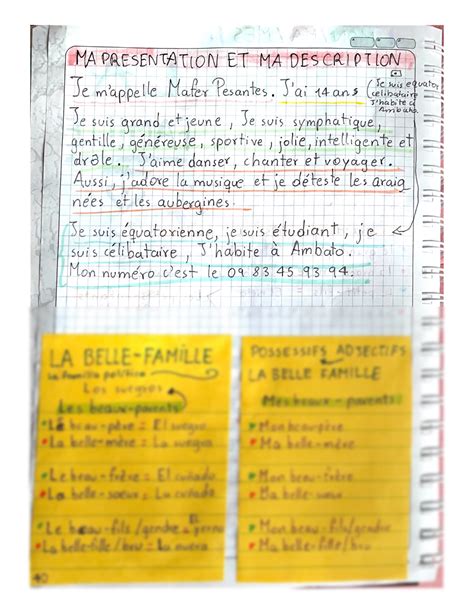 MA PRESENTATION ET MA DESCRIPTION
Je m'appelle Mafer Pesantes. J'ai 14 ans
(Je suis équator
célibataire
J'habite à
Ambato.
Je suis grand et jeune, Je suis symphatique,
gentille, généreuse, sportive, jolie, intelligente et
drôle. J'aime danser, chanter et voyager.
Aussi, j'adore la musique et je déteste les araig
nées et les aubergines.
Je suis équatorienne, je suis étudiant, je
suis célibataire, J'habite à Ambato.
Mon numéro c'est le 09 83 45 93 94.
LA BELLE-FAMILLE
La familia política
Los suegros
Les beaux-parents
Le beau-père = El suegro
La belle-mère = La suegra
Le beau-frère = El cuñado
La belle-soeur = La cuñada
Le beau-fils/gendre = El yerno
La belle-fille/bru = La nuera
40
POSSESSIFS ADJECTIFS
LA BELLE FAMILLE
Mes beaux-parents
Mon beau-père
Ma belle-mère
Mon beau-frère
Ma belle-soeur
Mon beau-fils/gendre
Ma belle-fille/bru